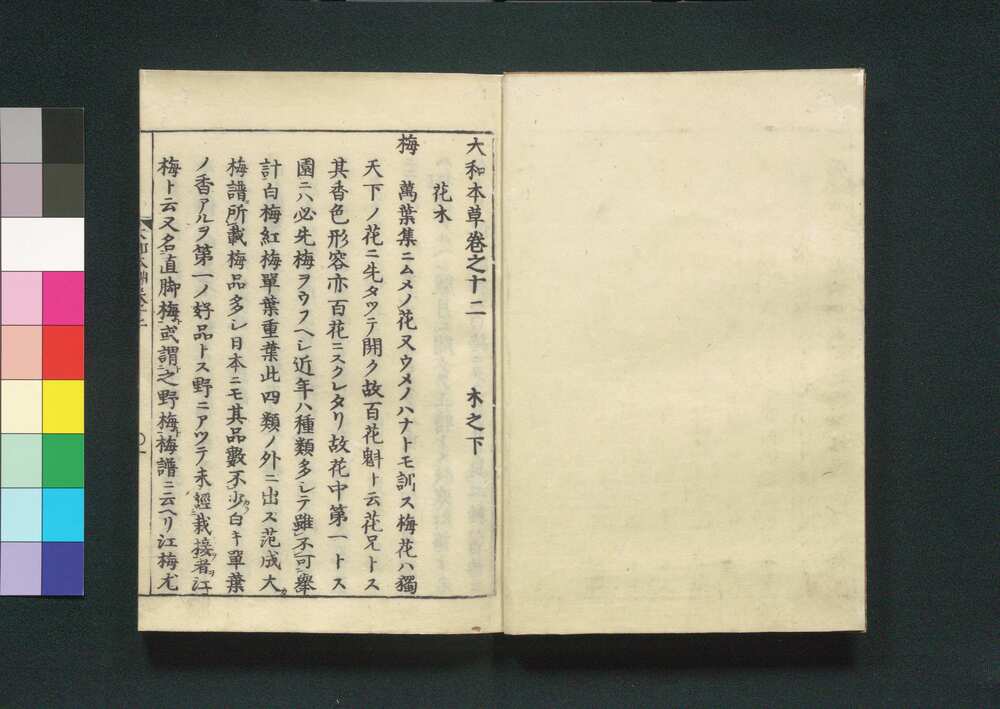 大和本草卷之十二 木之下
花木
梅 萬葉集ニムメノ花又ウメノハナトモ訓ス梅花ハ獨
天下ノ花ニ先タツテ開ク故百花魁ト云花兄トス
其香色形容亦百花ニスクレタリ故花中第一トス
園ニハ必先梅ヲウフヘシ近年ハ種類多シテ雖不可舉
計白梅紅梅單葉重葉此四類ノ外ニ出ス范成大
梅譜所載梅品多シ日本ニモ其品數不少白キ單葉
ノ香アルヲ第一ノ好品トス野ニアツテ未經栽接者江
梅ト云又名直脚梅或謂之野梅梅譜ニ云ヘリ江梅尤